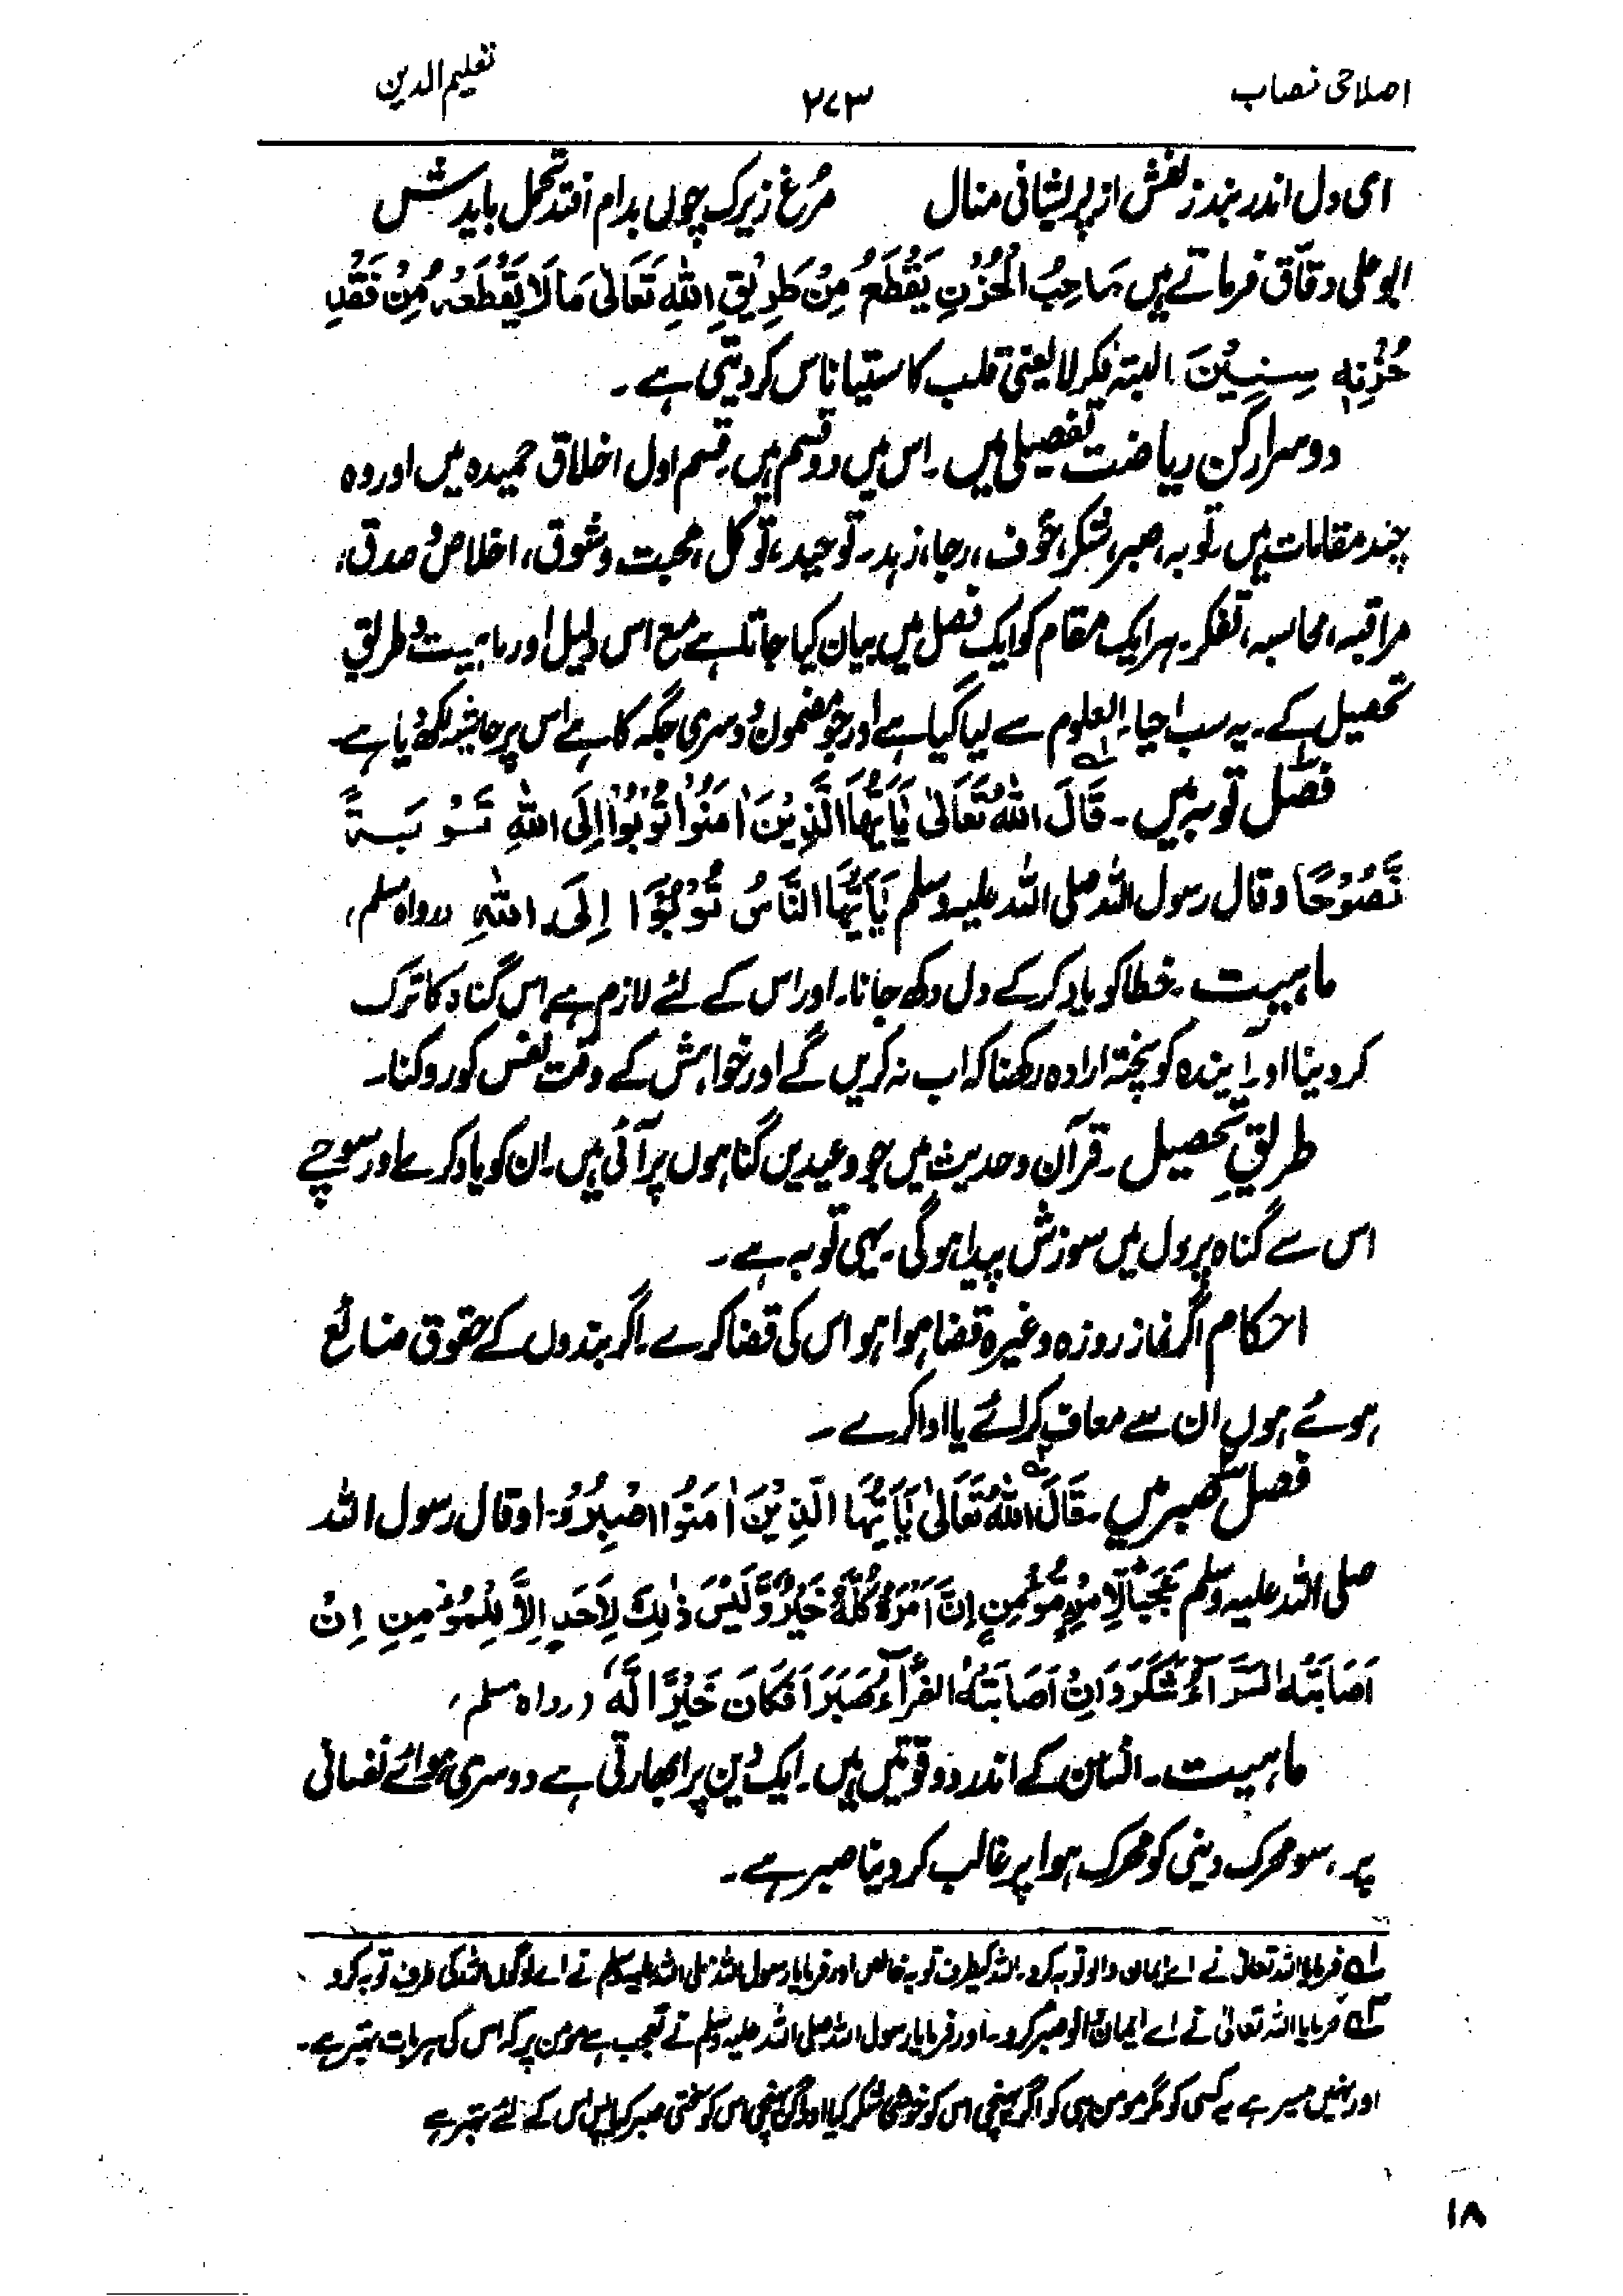 اصلاحی نصاب ۲۷۳ تعلیم الدین
ای دل اندر بند زلفش از پریشانی منال مرغ زیرک چوں بدام افتد تحمل بایدش
ابوعلی دقاق فرماتے ہیں صَاحِبُ الْحُزْنِ يَقْطَعُ مِنْ طَرِيْقِ اللهِ تَعَالٰى مَا لَا يَقْطَعُهٗ مِنْ فَقْدِ
حُزْنِهٖ سِنِيْنَ البتہ فکر لایعنی قلب کا ستیاناس کر دیتی ہے۔
دوسرا رکن ریاضت تفصیلی میں۔ اس میں دو قسم ہیں۔ قسم اول اخلاق حمیدہ میں اور وہ
چند مقامات ہیں۔ توبہ، صبر، شکر، خوف، رجا، زہد۔ توحید، توکل، محبت و شوق، اخلاص و صدق،
مراقبہ، محاسبہ، تفکر۔ ہر ایک مقام کو ایک فصل میں بیان کیا جاتا ہے مع اس دلیل اور ماہیت و طریق
تحصیل کے۔ یہ سب احیاء العلوم سے لیا گیا ہے اور جو مضمون دوسری جگہ کا ہے اس پر حاشیہ لکھ دیا ہے۔
فصل توبہ میں۔ قَالَ اللهُ تَعَالٰى يٰۤاَيُّهَا الَّذِيْنَ اٰمَنُوْا تُوْبُوْۤا اِلَى اللهِ تَوْبَةً
نَّصُوْحًا وقال رسول اللہ صلی اللہ علیہ وسلم يٰۤاَيُّهَا النَّاسُ تُوْبُوْۤا اِلَى اللهِ (رواہ مسلم)
ماہیت۔ خطا کو یاد کر کے دل دکھ جانا۔ اور اس کے لئے لازم ہے اس گناہ کا ترک
کر دینا اور آیندہ کو پختہ ارادہ رکھنا کہ اب نہ کریں گے اور خواہش کے وقت نفس کو روکنا۔
طریق تحصیل۔ قرآن و حدیث میں جو وعیدیں گناہوں پر آئی ہیں۔ ان کو یاد کرے اور سوچے
اس سے گناہ پر دل میں سوزش پیدا ہوگی۔ یہی توبہ ہے۔
احکام اگر نماز روزہ وغیرہ قضا ہوا ہو اس کی قضا کرے۔ اگر بندوں کے حقوق ضائع
ہوئے ہوں ان سے معاف کرائے یا ادا کرے۔
فصل صبر میں۔ قَالَ اللهُ تَعَالٰى يٰۤاَيُّهَا الَّذِيْنَ اٰمَنُوا اصْبِرُوْا وقال رسول اللہ
صلی اللہ علیہ وسلم عَجَبًا لِاَمْرِ مُؤْمِنٍ اِنَّ اَمْرَهٗ كُلَّهٗ خَيْرٌ وَّلَيْسَ ذٰلِكَ لِاَحَدٍ اِلَّا لِلْمُؤْمِنِ اِنْ
اَصَابَتْهُ السَّرَّآءُ شَكَرَ وَاِنْ اَصَابَتْهُ الضَّرَّآءُ صَبَرَ فَكَانَ خَيْرًا لَّهٗ (رواہ مسلم)
ماہیت۔ انسان کے اندر دو قوتیں ہیں۔ ایک دین پر ابھارتی ہے دوسری ہوائے نفسانی
پر۔ سو محرک دینی کو محرک ہوا پر غالب کر دینا صبر ہے۔
۱ فرمایا اللہ تعالیٰ نے اے ایمان والو توبہ کرو۔ اللہ کیطرف توبہ خالص اور فرمایا رسول اللہ صلی اللہ علیہ وسلم نے اے لوگوں اللہ کی طرف توبہ کرو
۲ فرمایا اللہ تعالیٰ نے اے ایمان والو صبر کرو۔ اور فرمایا رسول اللہ صلی اللہ علیہ وسلم نے تعجب ہے مومن پر کہ اس کی ہر بات بہتر ہے۔
اور نہیں میسر ہے یہ کسی کو مگر مومن ہی کو اگر پہنچی اس کو خوشی شکر کیا اور اگر پہنچی اس کو سختی صبر کیا پس اس کے لئے بہتر ہے
۱۸